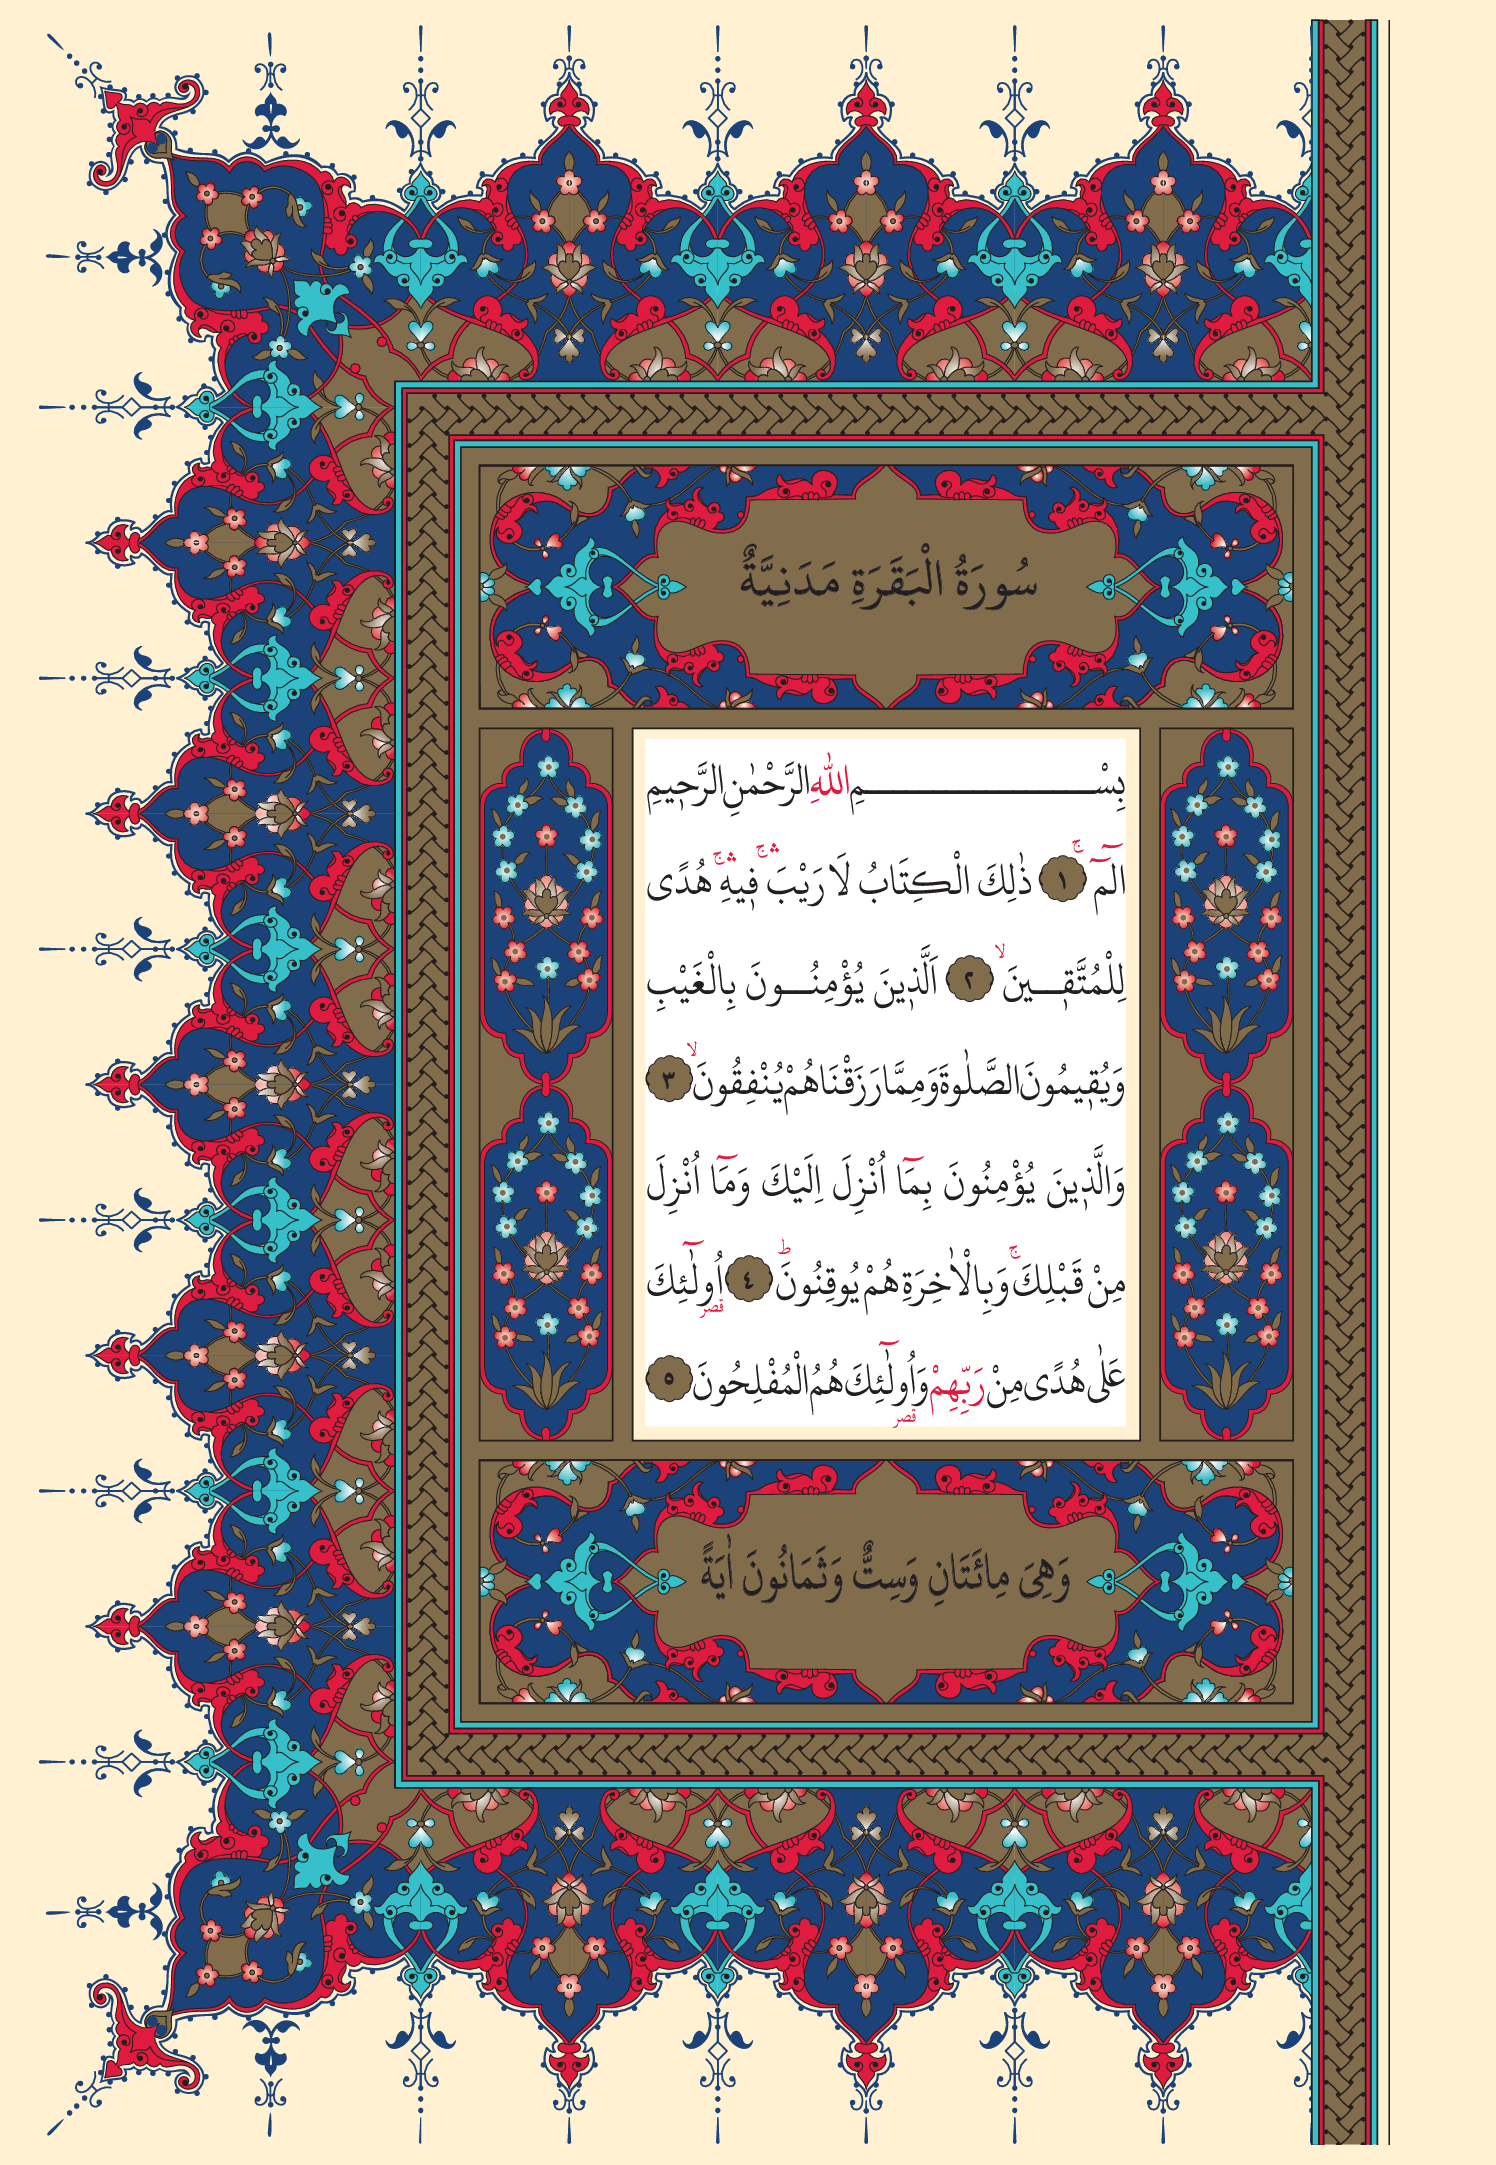 سُورَةُ الْبَقَرَةِ مَدَنِيَّةٌ
بِسْــــــــمِ اللّٰهِ الرَّحْمٰنِ الرَّح۪يمِ
الٓمٓ ۚ ﴿١﴾ ذٰلِكَ الْكِتَابُ لَا رَيْبَ ۚۛ ف۪يهِ ۚۛ هُدًى
لِلْمُتَّق۪ـــينَ ۙ ﴿٢﴾ اَلَّذ۪ينَ يُؤْمِنُـــونَ بِالْغَيْبِ
وَيُق۪يمُونَ الصَّلٰوةَ وَمِمَّا رَزَقْنَاهُمْ يُنْفِقُونَ ۙ ﴿٣﴾
وَالَّذ۪ينَ يُؤْمِنُونَ بِمَٓا اُنْزِلَ اِلَيْكَ وَمَٓا اُنْزِلَ
مِنْ قَبْلِكَ ۚ وَبِالْاٰخِرَةِ هُمْ يُوقِنُونَ ؕ ﴿٤﴾ اُو۬لٰٓئِكَ
قصر
عَلٰى هُدًى مِنْ رَبِّهِمْ وَاُو۬لٰٓئِكَ هُمُ الْمُفْلِحُونَ ﴿٥﴾
قصر
وَهِيَ مِائَتَانِ وَسِتٌّ وَثَمَانُونَ اٰيَةً